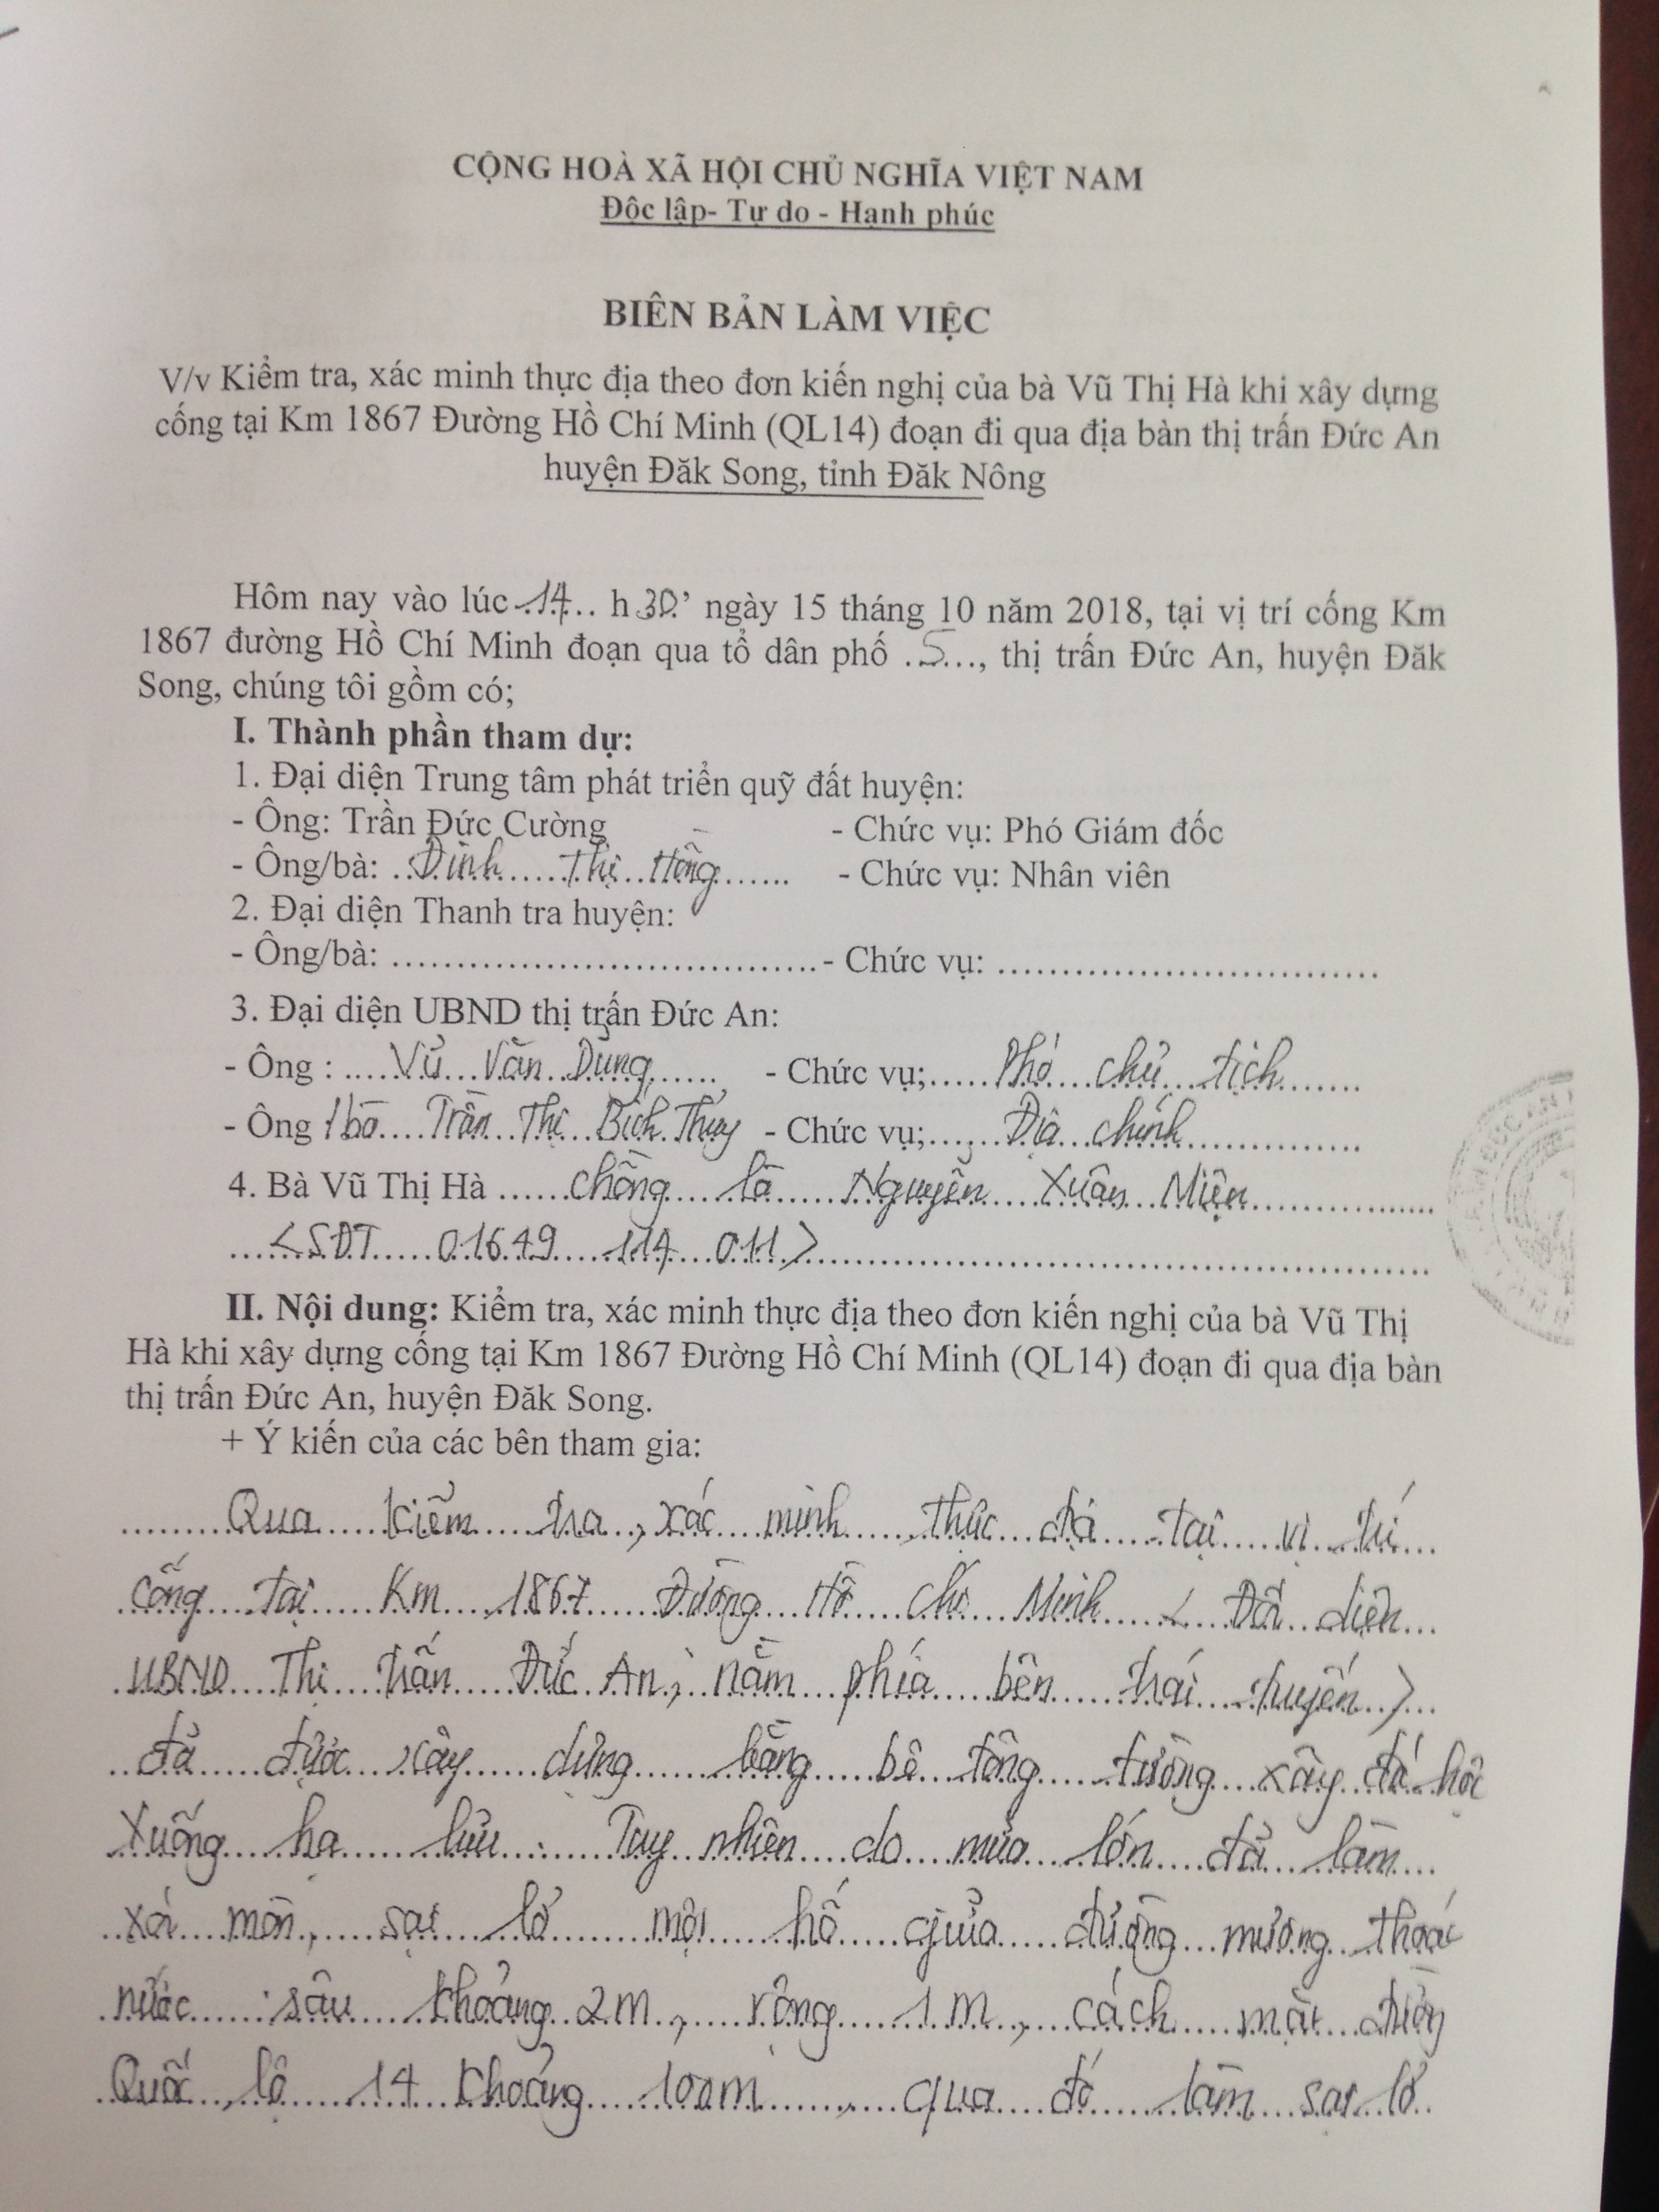 CỘNG HOÀ XÃ HỘI CHỦ NGHĨA VIỆT NAM
Độc lập- Tự do - Hạnh phúc
BIÊN BẢN LÀM VIỆC
V/v Kiểm tra, xác minh thực địa theo đơn kiến nghị của bà Vũ Thị Hà khi xây dựng
cống tại Km 1867 Đường Hồ Chí Minh (QL14) đoạn đi qua địa bàn thị trấn Đức An
huyện Đăk Song, tỉnh Đăk Nông
Hôm nay vào lúc 14 h 30' ngày 15 tháng 10 năm 2018, tại vị trí cống Km
1867 đường Hồ Chí Minh đoạn qua tổ dân phố 5, thị trấn Đức An, huyện Đăk
Song, chúng tôi gồm có;
I. Thành phần tham dự:
1. Đại diện Trung tâm phát triển quỹ đất huyện:
- Ông: Trần Đức Cường - Chức vụ: Phó Giám đốc
- Ông/bà: Đinh Thị Hồng - Chức vụ: Nhân viên
2. Đại diện Thanh tra huyện:
- Ông/bà: ........ - Chức vụ: ........
3. Đại diện UBND thị trấn Đức An:
- Ông : Vũ Văn Dũng - Chức vụ; Phó chủ tịch
- Ông /bà Trần Thị Bích Thủy - Chức vụ; Địa chính
4. Bà Vũ Thị Hà chồng là Nguyễn Xuân Miện
<SĐT 01649 114 011>
II. Nội dung: Kiểm tra, xác minh thực địa theo đơn kiến nghị của bà Vũ Thị
Hà khi xây dựng cống tại Km 1867 Đường Hồ Chí Minh (QL14) đoạn đi qua địa bàn
thị trấn Đức An, huyện Đăk Song.
+ Ý kiến của các bên tham gia:
Qua kiểm tra, xác minh, thực địa tại vị trí
cống tại Km 1867 Đường Hồ Chí Minh < Đối diện
UBND Thị trấn Đức An, nằm phía bên trái tuyến >
đã được xây dựng bằng bê tông tường xây đá hộc
xuống hạ lưu. Tuy nhiên do mưa lớn đã làm
xói mòn, sạt lở một hố giữa đường mương thoát
nước sâu khoảng 2m, rộng 1m, cách mặt đường
Quốc lộ 14 khoảng 100m, qua đó làm sạt lở